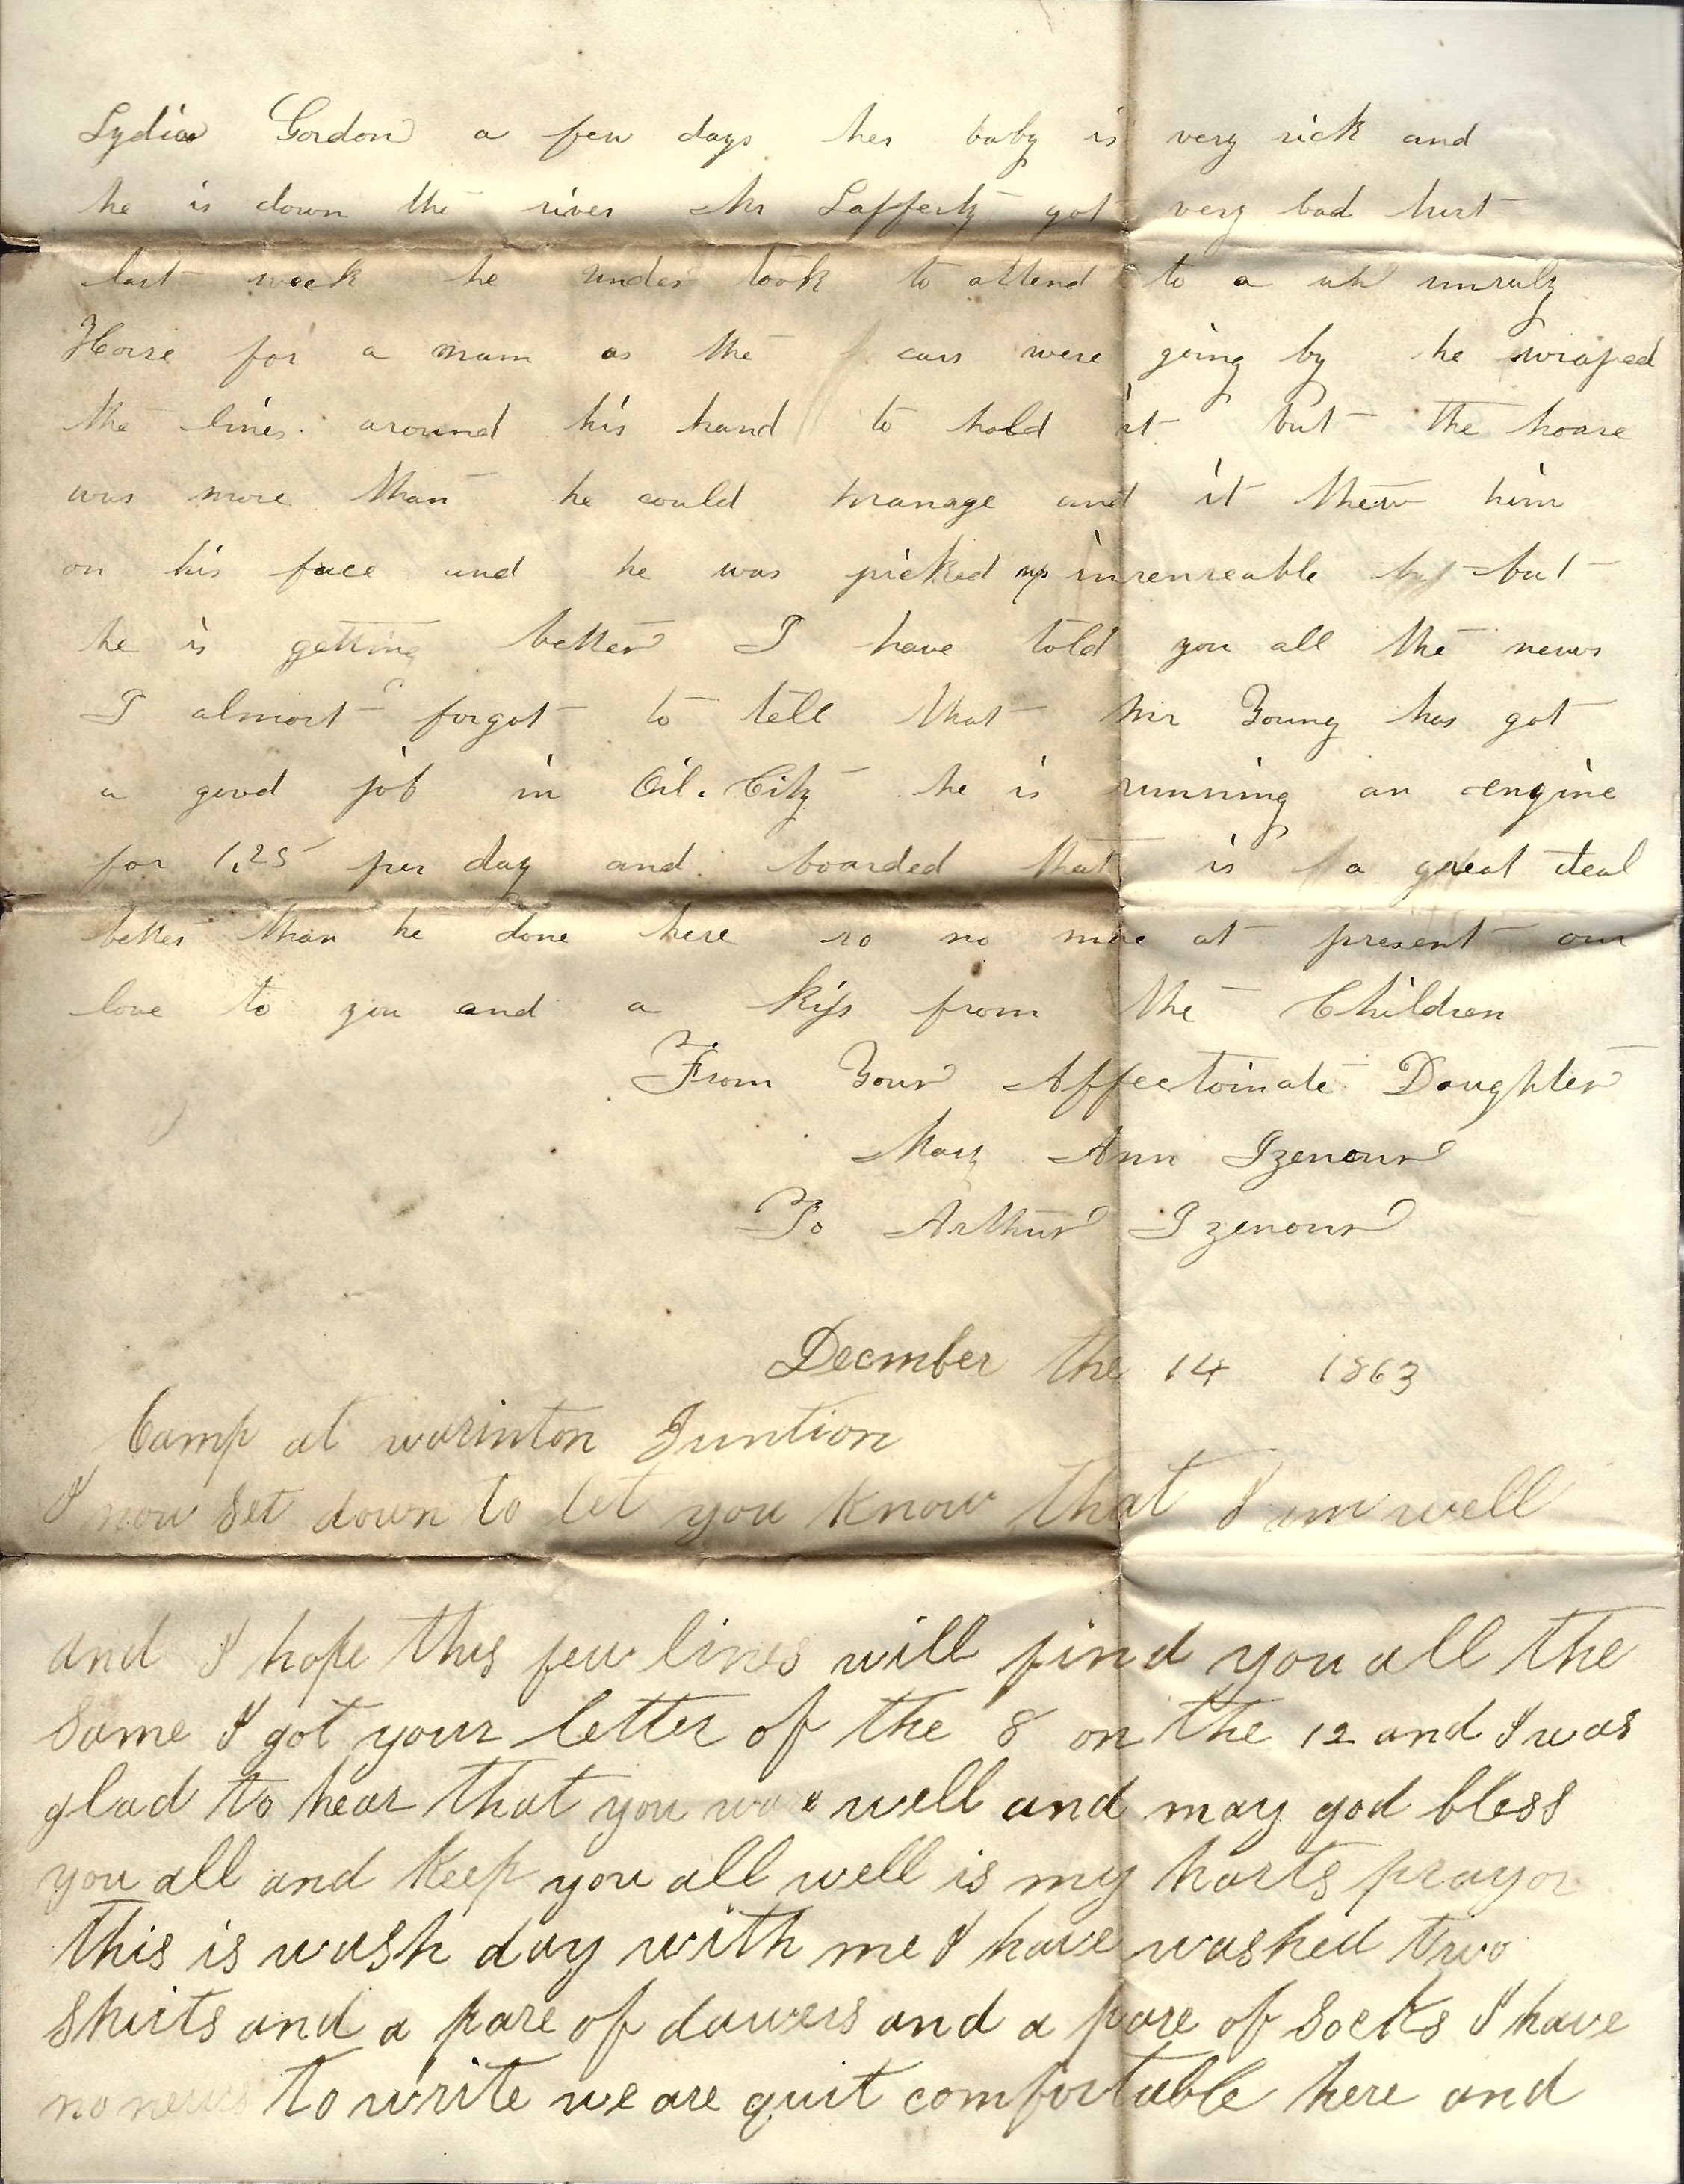 Lydia Gordon a few days her baby is very sick and
he is down the river Mr Lafferty got very bad hurt
last week he under took to attend to a un unruly
Horse for a man as the cars were going by he wraped
the lines around his hand to hold it but the hoase
was more than he could manage and it thew him
on his face and he was picked up insenseable but
he is getting better I have told you all the news
I almost forgot to tell that Mr Young has got
a good job in Oil City he is running an engine
for 1,25 per day and boarded that is a great deal
better than he done here so no more at present our
love to you and a kiss from the Children
From Your Affectoinate Daughter
Mary Ann Izenour
To Arthur Izenour
Decmber the 14 1863
Camp at warinton Juntion
I now set down to let you know that I am well
and I hope this few lines will find you all the
same I got your letter of the 8 on the 12 and I was
glad to hear that you ware well and may god bless
you all and keep you all well is my harts prayor
this is wash day with me I have washed two
shirts and a pare of dawers and a pare of socks I have
no news to write we are quit comfortable here and